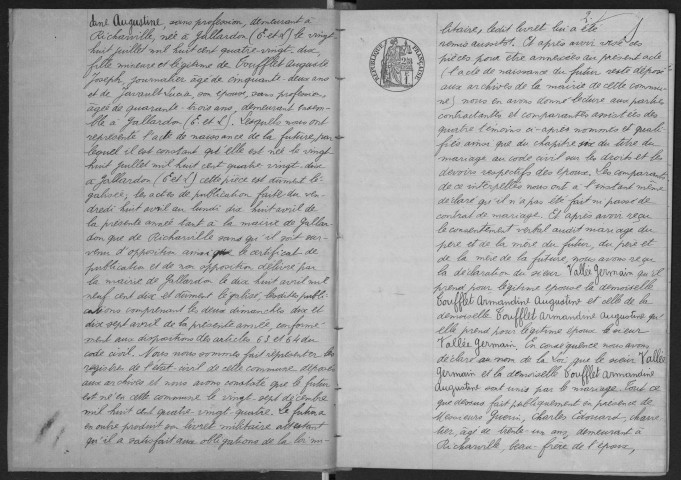 dine Augustine sans profession, demeurant à
Richarville, née à Gallardon (E et L) le vingt
huit juillet mil huit cent quatre vingt-dix,
fille mineure et légitime de Toufflet Auguste
Joseph, journalier âgé de cinquante-deux ans
et de Javault Lucia, son épouse, sans profession
âgée de quarante-trois ans, demeurant ensem-
ble à Gallardon (E. et L.). Lesquels nous ont
représenté l'acte de naissance de la future, par
lequel il est constaté qu'elle est née le vingt
huit juillet mil huit cent quatre vingt-dix
à Gallardon (E et L) cette pièce est dûment lé-
galisée, les actes de publication faite du ven-
dredi huit avril au lundi dix huit avril de
la présente année tant à la mairie de Gallar-
don que de Richarville sans qu'il soit sur-
venu d'opposition ainsi que le certificat de
publication et de non opposition délivré par
la mairie de Gallardon le dix huit avril mil
neuf cent dix et dûment légalisé, lesdites publi-
cations comprennent les deux dimanches dix et
dix sept avril de la présente année, conformé-
ment aux dispositions des articles 63 et 64 du
code civil. Nous nous sommes fait représenter les
registres de l'état civil de cette commune déposés
aux archives et nous avons constaté que le futur
est né en cette commune le vingt sept
mil huit cent quatre vingt quatre. Le futur a
en outre produit son livret militaire attestant
qu'il a satisfait aux obligations de la loi mi-
2
litaire, ledit livret lui a été
remis aussitôt. Et après avoir visé ces
pièces pour être annexées au présent acte
(l'acte de naissance du futur reste déposé
aux archives de la mairie de cette commu-
ne) nous en avons donné lecture aux parties
contractantes et comparantes assistées des
quatre témoins ci-après nommés et quali-
fiés ainsi que du chapitre six du titre du
mariage au code civil sur les droits et les
devoirs respectifs des époux. Les comparants
de ce interpellés nous ont à l'instant même
déclaré qu'il n'a pas été fait ni passé de
contrat de mariage. Et après avoir reçu
le consentement verbal audit mariage du
père et de la mère du futur, du père et
de la mère de la future, nous avons reçu
la déclaration du sieur Vallée Germain qu'il
prend pour légitime épouse la demoiselle
Toufflet Armandine Augustine et celle de la
demoiselle Toufflet Armandine Augustine qu'
elle prend pour légitime époux le sieur
Vallée Germain. En conséquence nous avons
déclaré au nom de la Loi que le sieur Vallée
Germain et la demoiselle Toufflet Armandine
Augustine sont unis par le mariage. Tout ce
que dessus fait publiquement en présence de
Messieurs Guérin, Charles Edouard, charre-
tier, âgé de trente-un ans, demeurant à
Richarville, beau-frère de l'époux,
RÉPUBLIQUE FRANÇAISE